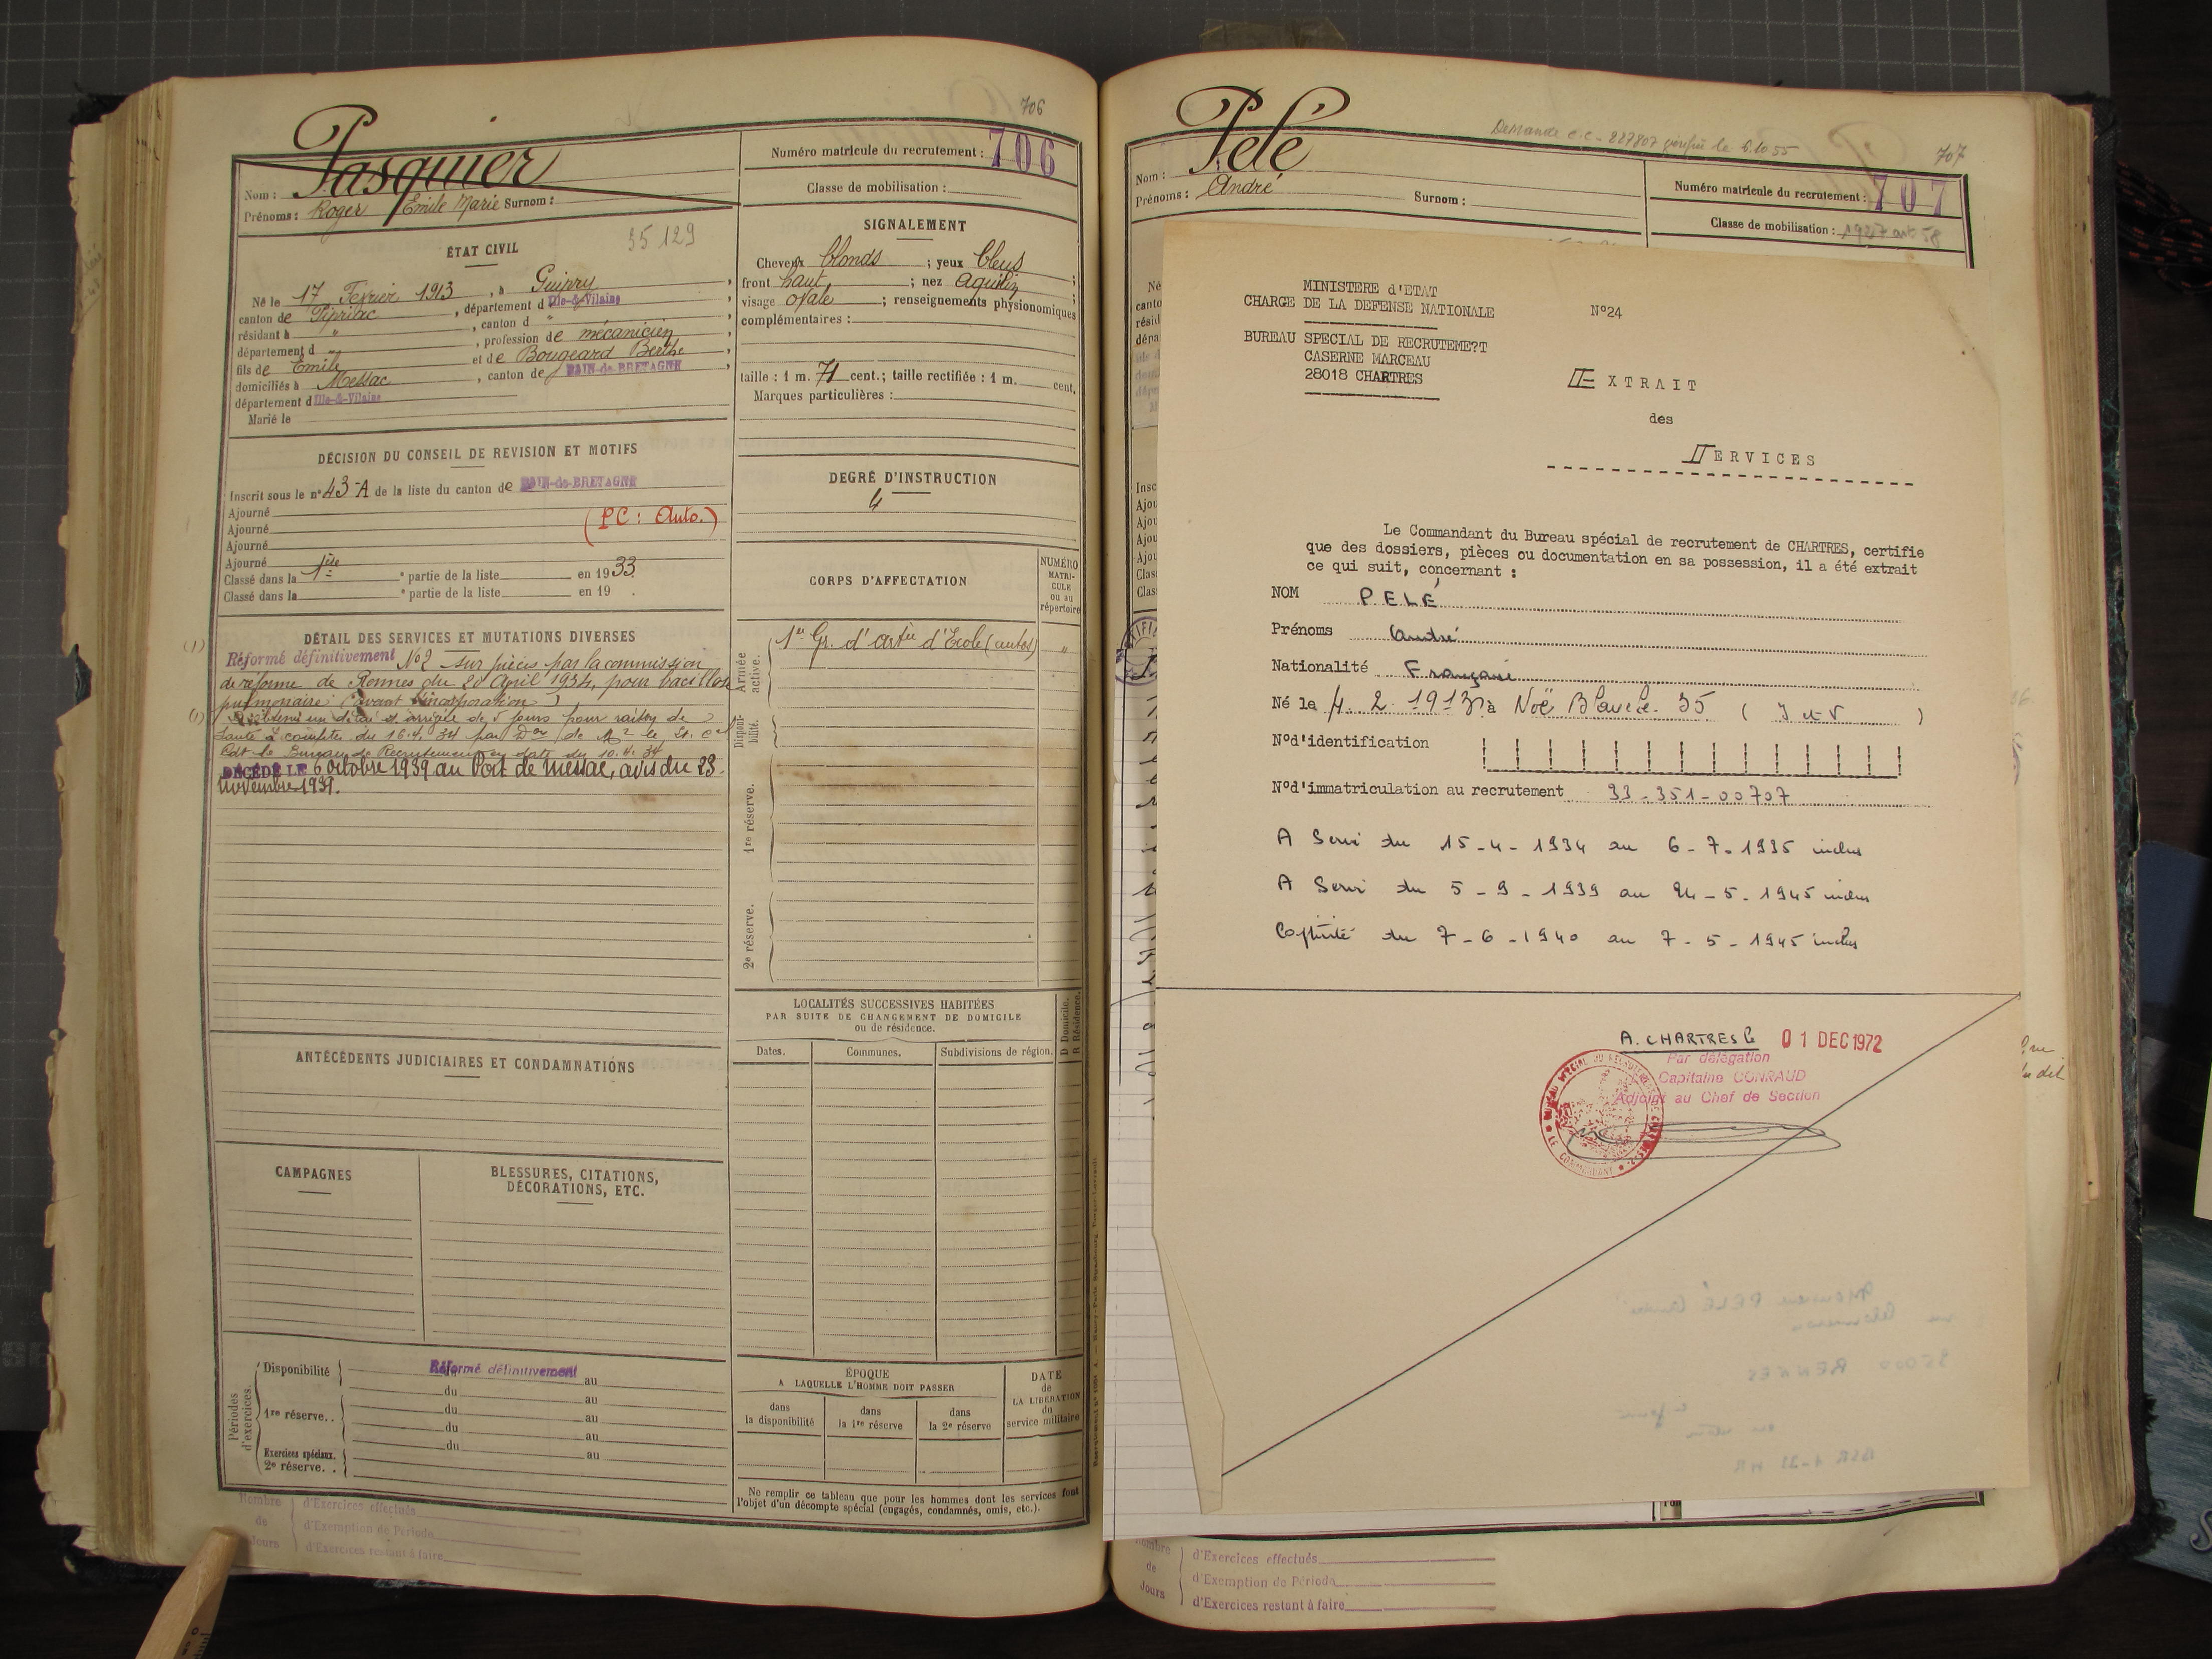 706
Pasquier
Nom :
Prénoms : Roger Emile Marie Surnom :
Numéro matricule du recrutement : 706
Classe de mobilisation :
35 129
ÉTAT CIVIL
Né le 17 Février 1913, à Guipry,
canton de Pipriac, département d Ille-&-Vilaine,
résidant à ", canton d ",
département d ", profession de mécanicien
fils de Emile et de Bougeard Berthe,
domiciliés à Messac, canton de BAIN-de-BRETAGNE,
département d Ille-&-Vilaine
Marié le
SIGNALEMENT
Cheveux blonds ; yeux bleus ;
front haut ; nez aquilin ;
visage ovale ; renseignements physionomiques
complémentaires :
taille : 1 m. 71 cent.; taille rectifiée : 1 m. cent.
Marques particulières :
DÉCISION DU CONSEIL DE REVISION ET MOTIFS
Inscrit sous le n° 43-A de la liste du canton de BAIN-de-BRETAGNE
Ajourné
Ajourné (PC : Auto.)
Ajourné
Ajourné
Classé dans la 1ère partie de la liste en 1933.
Classé dans la e partie de la liste en 19 .
DEGRÉ D'INSTRUCTION
4
DÉTAIL DES SERVICES ET MUTATIONS DIVERSES
(1) Réformé définitivement No 2 sur pièces par la commission
de réforme de Rennes du 20 April 1934, pour bacillose
pulmonaire (avant incorporation)
(1) obtenu un délai d'arrivée de 5 jours pour raison de
santé à compter du 16.4.34 par
Cdt le Bureau de Recrutement en date du 10.4.34
DÉCÉDÉ LE 6 Octobre 1939 au Port de Messac, avis du 23
novembre 1939.
CORPS D'AFFECTATION
NUMÉRO MATRI-CULE ou au répertoire
Armée active.
1er Gr. d'artie d'Ecole (autos) "
Disponi-bilité.
1re réserve.
2e réserve.
LOCALITÉS SUCCESSIVES HABITÉES
PAR SUITE DE CHANGEMENT DE DOMICILE
ou de résidence.
D Domicile.
R Résidence.
Dates. Communes. Subdivisions de région.
ANTÉCÉDENTS JUDICIAIRES ET CONDAMNATIONS
CAMPAGNES
BLESSURES, CITATIONS,
DÉCORATIONS, ETC.
Périodes d'exercices.
Disponibilité Réformé définitivement au
du au
1re réserve.. du au
du au
Exercices spéciaux. du au
2e réserve. .
ÉPOQUE
A LAQUELLE L'HOMME DOIT PASSER
dans la disponibilité
dans la 1re réserve
dans la 2e réserve
DATE de LA LIBÉRATION du service militaire
Ne remplir ce tableau que pour les hommes dont les services font
l'objet d'un décompte spécial (engagés, condamnés, omis, etc.).
Nombre de Jours
d'Exercices effectués
d'Exemption de Période
d'Exercices restant à faire
Pelé
Demande c.c - 227807 le 6.10 55
707
Nom :
Prénoms : André Surnom :
Numéro matricule du recrutement : 707
Classe de mobilisation :
MINISTERE d'ETAT
CHARGE DE LA DEFENSE NATIONALE
N°24
BUREAU SPECIAL DE RECRUTEME?T
CASERNE MARCEAU
28018 CHARTRES
EXTRAIT
des
SERVICES
Le Commandant du Bureau spécial de recrutement de CHARTRES, certifie
que des dossiers, pièces ou documentation en sa possession, il a été extrait
ce qui suit, concernant :
NOM PELÉ
Prénoms André
Nationalité Française
Né le 4. 2. 1913 à Noë Blanche. 35 ( I et V )
N°d'identification
N°d'immatriculation au recrutement 33-351-00707
A Servi du 15-4-1934 au 6-7-1935 inclus
A Servi du 5-9-1939 au 24-5-1945 inclus
Captivité du 7-6-1940 au 7-5-1945 inclus
A. CHARTRES le 01 DEC 1972
Par délégation
Capitaine CONRAUD
Adjoint au Chef de Section
Nombre de Jours
d'Exercices effectués
d'Exemption de Période
d'Exercices restant à faire